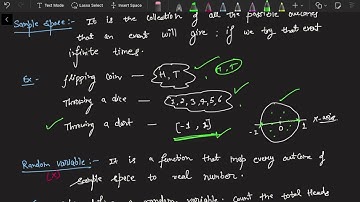 Lasso Select
Insert Space
Sample space :- It is the collection of all the possible outcomes
that an event will give ; if we try that event
infinite times.
Ex - flipping coin — {H, T} {H, T}
Throwing a dice — {1, 2, 3, 4, 5, 6}
Throwing a dart — [-1, 1]
-1 0 1 x-axis
Random variable :- It is a function that map every outcome of
(X) sample space to real number.
a random variable count the total Heads